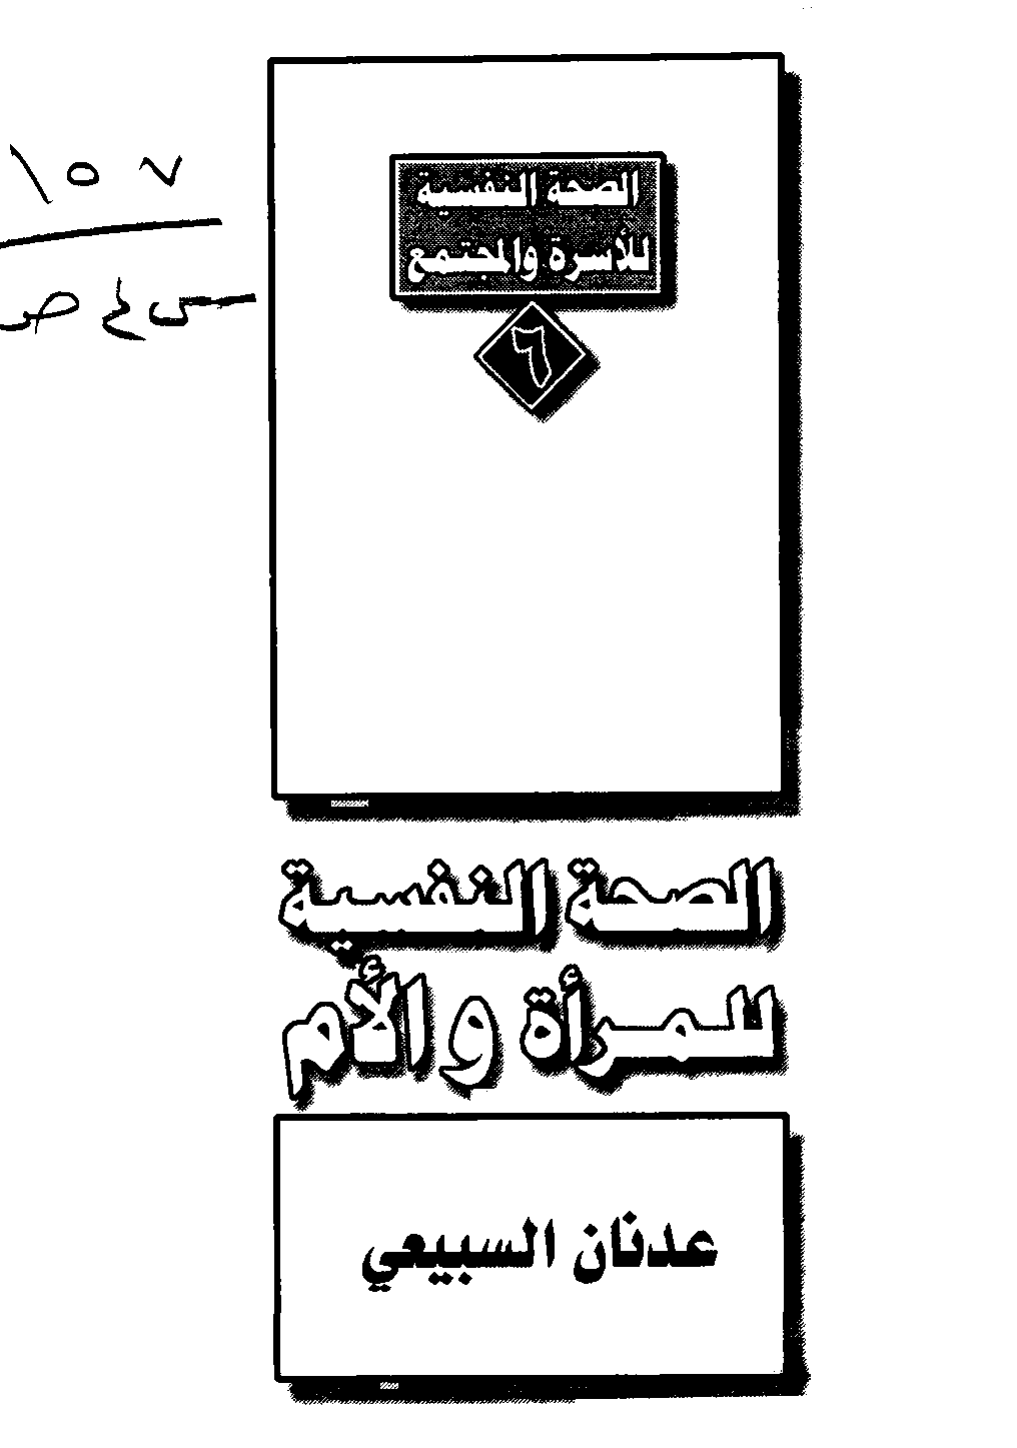 ١٥٧
س ع ص
الصحة النفسية
للأسرة والمجتمع
٦
الصحة النفسية
للمرأة والأم
عدنان السبيعي